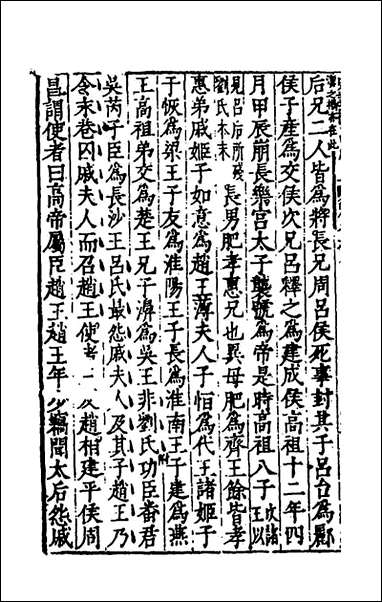 后兄二人皆爲將長兄周呂侯死事封其子呂台爲酈
侯子產爲交侯次兄呂釋之爲建成侯高祖十二年四
月甲辰崩長樂宮太子襲號爲帝是時高祖八子次諸王以
見呂后所殘劉氏本末長男肥孝惠兄也異母肥爲齊王餘皆孝
惠弟戚姬子如意爲趙王薄夫人子恒爲代王諸姬子
子恢爲梁王子友爲淮陽王子長爲淮南王子建爲燕
王高祖弟交爲楚王兄子濞爲吳王非劉氏功臣番君
吳芮子臣爲長沙王呂氏最怨戚夫人及其子趙王乃
令永巷囚戚夫人而召趙王使者趙相建平侯周
昌謂使者曰高帝屬臣趙王趙王年少竊聞太后怨戚